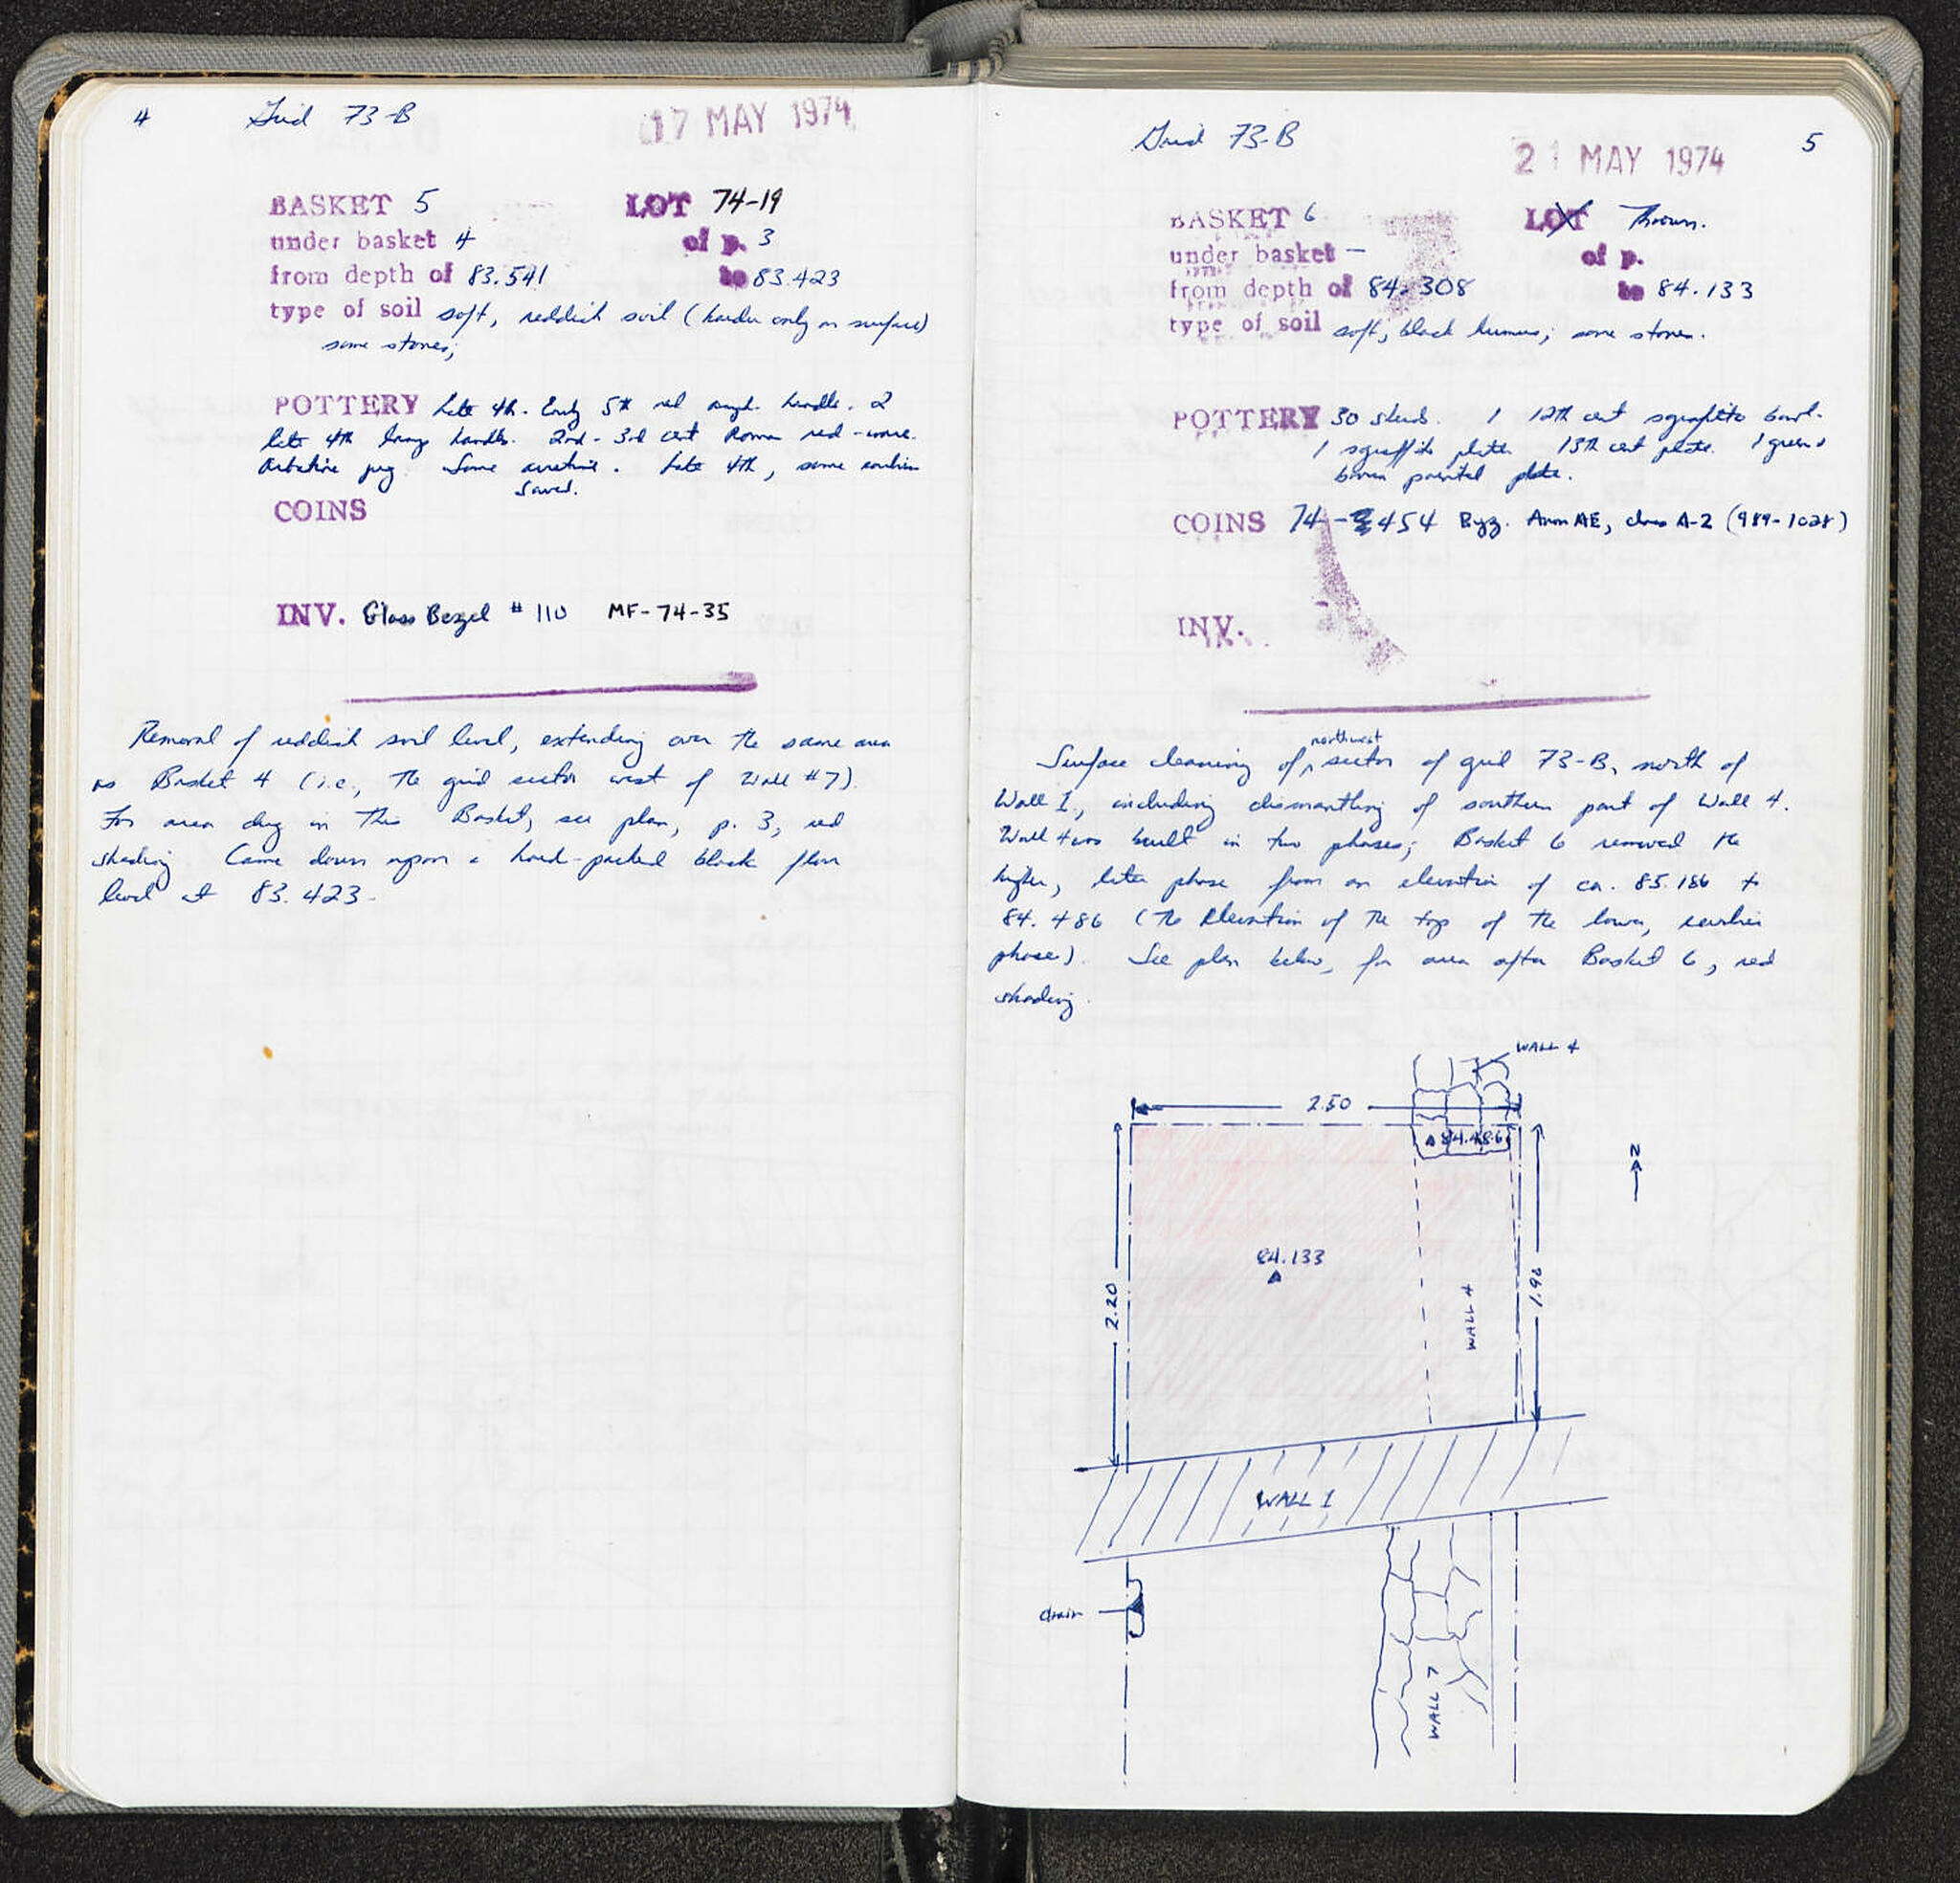 4 Grid 73-B 17 MAY 1974
BASKET 5 LOT 74-19
under basket 4 of p. 3
from depth of 83.541 to 83.423
type of soil soft, reddish soil (harder only on surface)
some stones;
POTTERY Late 4th. Early 5th red handle. 2
late 4th handle. 2nd-3rd cent Roman red-ware.
jug. Some . Late 4th, some earlier
Saved.
COINS
INV. Glass Bezel # 110 MF-74-35
Removal of reddish soil level, extending over the same area
as Basket 4 (i.e., the grid sector west of Wall #7).
For area dug in this Basket, see plan, p. 3, red
shading. Came down upon a hard-packed black floor
level at 83.423.
Grid 73-B 21 MAY 1974 5
BASKET 6 LOT Thrown.
under basket — of p.
from depth of 84.308 to 84.133
type of soil soft, black humus; some stones.
POTTERY 30 sherds. 1 12th cent sgraffito bowl.
1 sgraffito plate 13th cent plate. 1 green &
brown painted plate.
COINS 74-454 Byz. Anon AE, class A-2 (989-1028)
INV.
Surface cleaning of northwest sector of grid 73-B, north of
Wall 1, including dismantling of southern part of Wall 4.
Wall 4 was built in two phases; Basket 6 removed the
higher, later phase from an elevation of ca. 85.186 to
84.486 (the elevation of the top of the lower, earlier
phase). See plan below, for area after Basket 6, red
shading.
WALL 4
2.50
84.486
N
84.133
2.20
WALL 4
1.96
WALL 1
drain
WALL 7